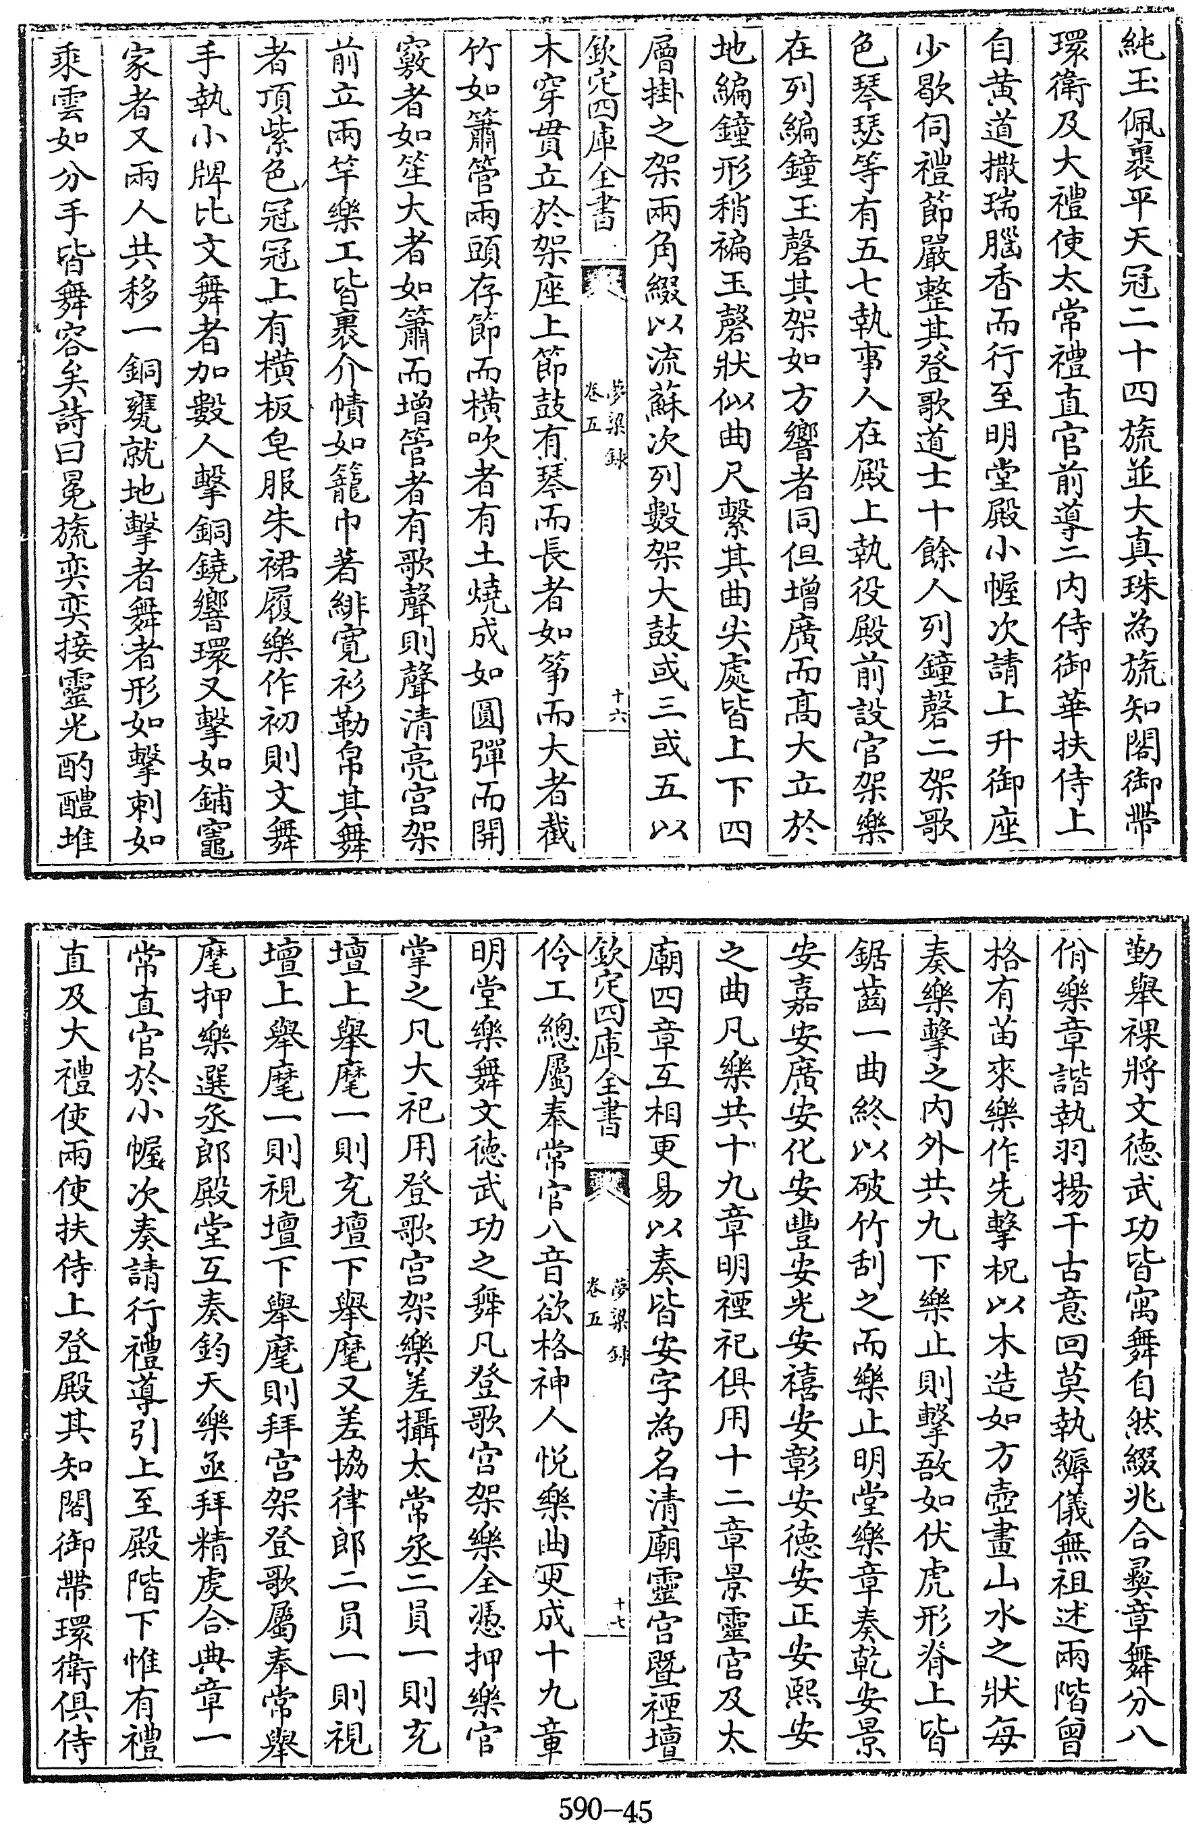 純玉佩裹平天冠二十四旒並大真珠為旒知閤御帶
環衛及大禮使太常禮直官前導二内侍御華扶侍上
自黄道撒瑞腦香而行至明堂殿小幄次請上升御座
少歇伺禮節嚴整其登歌道士十餘人列鐘磬二架歌
色琴瑟等有五七執事人在殿上執役殿前設官架樂
在列編鐘玉磬其架如方響者同但增廣而髙大立於
地編鐘形稍褊玉磬狀似曲尺繫其曲尖處皆上下四
層掛之架兩角綴以流蘇次列數架大鼓或三或五以
欽定四庫全書
夢粱録
卷五
十六
木穿貫立於架座上節鼓有琴而長者如筝而大者截
竹如簫管兩頭存節而横吹者有土燒成如圓彈而開
竅者如笙大者如簫而增管者有歌聲則聲清亮宫架
前立兩竿樂工皆裹介幘如籠巾著緋寛衫勒帛其舞
者頂紫色冠冠上有横板皂服朱裙履樂作初則文舞
手執小牌比文舞者加數人擊銅鐃響環又擊如鋪竈
家者又兩人共移一銅甕就地擊者舞者形如擊刺如
乘雲如分手皆舞容矣詩曰冕旒奕奕接靈光酌醴堆
勤舉祼將文德武功皆寓舞自然綴兆合彞章舞分八
佾樂章諧執羽揚干古意回莫執縟儀無祖述兩階曾
格有苗來樂作先擊柷以木造如方壺畫山水之狀每
奏樂擊之内外共九下樂止則擊敔如伏虎形脊上皆
鋸齒一曲終以破竹刮之而樂止明堂樂章奏乾安景
安嘉安廣安化安豐安光安禧安彰安德安正安熙安
之曲凡樂共十九章明禋祀俱用十二章景靈官及太
廟四章互相更易以奏皆安字為名清廟靈宫暨禋壇
欽定四庫全書
夢粱録
卷五
十七
伶工總屬奉常官八音欲格神人悦樂曲更成十九章
明堂樂舞文德武功之舞凡登歌宫架樂全憑押樂官
掌之凡大祀用登歌宫架樂差攝太常丞二員一則充
壇上舉麾一則充壇下舉麾又差協律郎二員一則視
壇上舉麾一則視壇下舉麾則拜宫架登歌屬奉常舉
麾押樂選丞郎殿堂互奏鈞天樂亟拜精虔合典章一
常直官於小幄次奏請行禮導引上至殿階下惟有禮
直及大禮使兩使扶侍上登殿其知閤御帶環衛俱侍
590-45